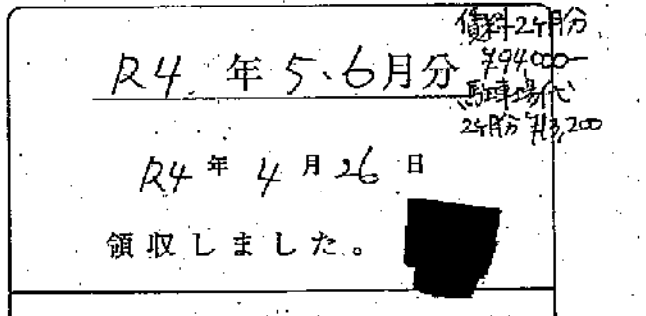 賃料2ケ月分
¥94,000-
駐車場代
2ケ月分 ¥13,200
R4.年5、6月分
R4年4月26日
領収しました。